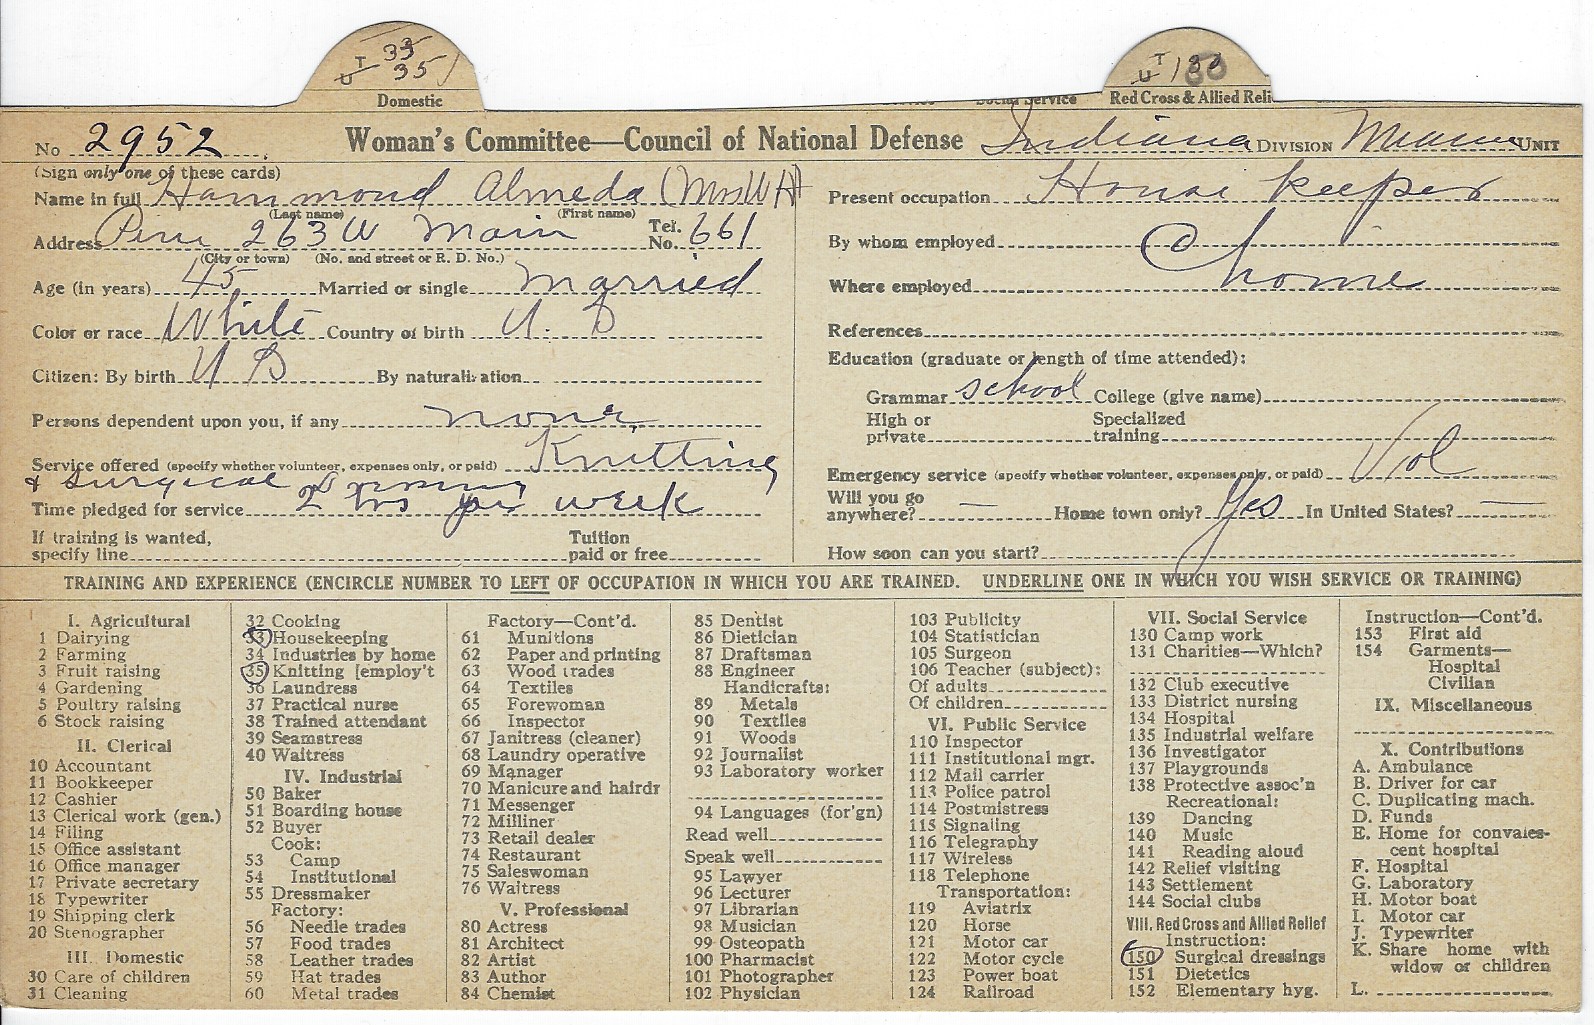 T 33
U 35
Domestic
T 1
U
Social Service
Red Cross & Allied Reli
No 2952
Woman's Committee—Council of National Defense Indiana DIVISION Miami UNIT
(Sign only one of these cards)
Name in full Hammond Almeda (Mrs W H)
(Last name) (First name)
Address Peru 263 W Main Tel. No. 661
(City or town) (No. and street or R. D. No.)
Age (in years) 45 Married or single married
Color or race White Country of birth U. S
Citizen: By birth U S By naturalization
Persons dependent upon you, if any none
Service offered (specify whether volunteer, expenses only, or paid) Knitting
& Surgical Dressing
Time pledged for service 2 hrs per week
If training is wanted,
specify line
Tuition
paid or free
Present occupation House keeper
By whom employed @
Where employed home
References
Education (graduate or length of time attended):
Grammar school College (give name)
High or
private
Specialized
training
Emergency service (specify whether volunteer, expenses only, or paid) Vol
Will you go
anywhere? — Home town only? Yes In United States? —
How soon can you start?
TRAINING AND EXPERIENCE (ENCIRCLE NUMBER TO LEFT OF OCCUPATION IN WHICH YOU ARE TRAINED. UNDERLINE ONE IN WHICH YOU WISH SERVICE OR TRAINING)
I. Agricultural
1 Dairying
2 Farming
3 Fruit raising
4 Gardening
5 Poultry raising
6 Stock raising
II. Clerical
10 Accountant
11 Bookkeeper
12 Cashier
13 Clerical work (gen.)
14 Filing
15 Office assistant
16 Office manager
17 Private secretary
18 Typewriter
19 Shipping clerk
20 Stenographer
III. Domestic
30 Care of children
31 Cleaning
32 Cooking
33 Housekeeping
34 Industries by home
35 Knitting [employ't
36 Laundress
37 Practical nurse
38 Trained attendant
39 Seamstress
40 Waitress
IV. Industrial
50 Baker
51 Boarding house
52 Buyer
Cook:
53 Camp
54 Institutional
55 Dressmaker
Factory:
56 Needle trades
57 Food trades
58 Leather trades
59 Hat trades
60 Metal trades
Factory—Cont'd.
61 Munitions
62 Paper and printing
63 Wood trades
64 Textiles
65 Forewoman
66 Inspector
67 Janitress (cleaner)
68 Laundry operative
69 Manager
70 Manicure and hairdr
71 Messenger
72 Milliner
73 Retail dealer
74 Restaurant
75 Saleswoman
76 Waitress
V. Professional
80 Actress
81 Architect
82 Artist
83 Author
84 Chemist
85 Dentist
86 Dietician
87 Draftsman
88 Engineer
Handicrafts:
89 Metals
90 Textiles
91 Woods
92 Journalist
93 Laboratory worker
94 Languages (for'gn)
Read well
Speak well
95 Lawyer
96 Lecturer
97 Librarian
98 Musician
99 Osteopath
100 Pharmacist
101 Photographer
102 Physician
103 Publicity
104 Statistician
105 Surgeon
106 Teacher (subject):
Of adults
Of children
VI. Public Service
110 Inspector
111 Institutional mgr.
112 Mail carrier
113 Police patrol
114 Postmistress
115 Signaling
116 Telegraphy
117 Wireless
118 Telephone
Transportation:
119 Aviatrix
120 Horse
121 Motor car
122 Motor cycle
123 Power boat
124 Railroad
VII. Social Service
130 Camp work
131 Charities—Which?
132 Club executive
133 District nursing
134 Hospital
135 Industrial welfare
136 Investigator
137 Playgrounds
138 Protective assoc'n
Recreational:
139 Dancing
140 Music
141 Reading aloud
142 Relief visiting
143 Settlement
144 Social clubs
VIII. Red Cross and Allied Relief
Instruction:
150 Surgical dressings
151 Dietetics
152 Elementary hyg.
Instruction—Cont'd.
153 First aid
154 Garments—
Hospital
Civilian
IX. Miscellaneous
X. Contributions
A. Ambulance
B. Driver for car
C. Duplicating mach.
D. Funds
E. Home for convales-
cent hospital
F. Hospital
G. Laboratory
H. Motor boat
I. Motor car
J. Typewriter
K. Share home with
widow or children
L.